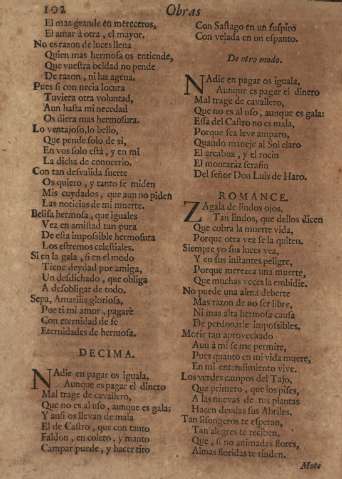 192 Obras
El mas grande en mereceros,
El amar à otra, el mayor.
No es razon de luces llena
Quien mas hermosa os entiende,
Que vuestra beldad no pende
De razon, ni has agena.
Pues si con necia locura
Tuviera otra voluntad,
Aun hasta mi necedad
Os diera mas hermosura.
Lo ventajoso, lo bello,
Que pende solo de si,
En vos solo està, y en mi
La dicha de conocerlo.
Con tan desvalida suerte
Os quiero, y tanto se miden
Mis cuydados, que aun no piden
Las noticias de mi muerte.
Belisa hermosa, que iguales
Vez en amistad tan pura
De esta impossible hermosura
Los estremos celestiales.
Si en la gala, si en el modo
Tiene deydad por amiga,
Un desdichado, que obliga
A desobligar de todo.
Sepa, Amarilis gloriosa,
Por ti mi amor, pagarè
Con eternidad de fè
Eternidades de hermosa.
DECIMA.
NAdie en pagar os iguala,
Aunque es pagar el dinero
Mal trage de cavallero,
Que no es al uso, aunque es gala:
Y ansi os llevan de mala
El de Castro, que con tanto
Faldon, en coleto, y manto
Campar puede, y hacer tiro
Con Sastago en un suspiro
Con velada en un espanto.
De otro modo.
NAdie en pagar os iguala,
Aunque es pagar el dinero
Mal trage de cavallero,
Que no es al uso, aunque es gala:
Esta del Castro no es mala,
Porque sea leve amparo,
Quando maneje al Sol claro
El arcabuz, y el rocin
El montaraz serafin
Del señor Don Luis de Haro.
ROMANCE.
ZAgala de lindos ojos,
Tan lindos, que dellos dicen
Que cobra la muerte vida,
Porque otra vez se la quiten.
Siempre yo sus luces vea,
Y en sus instantes peligre,
Porque merezca una muerte,
Que muchas veces la embidie.
No puede una alma deberte
Mas razon de no ser libre,
Ni mas alta hermosa causa
De perdonarle impossibles.
Morir tan aprovechado
Aun à mi se me permite,
Pues quanto en mi vida muere,
En mi entretenimiento vive.
Los verdes campos del Tajo,
Que primero, que los pises,
A las nuevas de tus plantas
Hacen deudas sus Abriles.
Tan lisongeros te esperan,
Tan alegres te reciben,
Que, si no animadas flores,
Almas floridas te rinden.
Mote